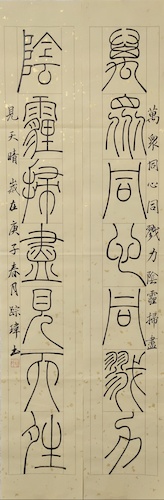 萬眾同心同戮力
萬眾同心同戮力陰霾掃盡
陰霾掃盡見天晴
見天晴 歲在庚子春月 踪瑋书